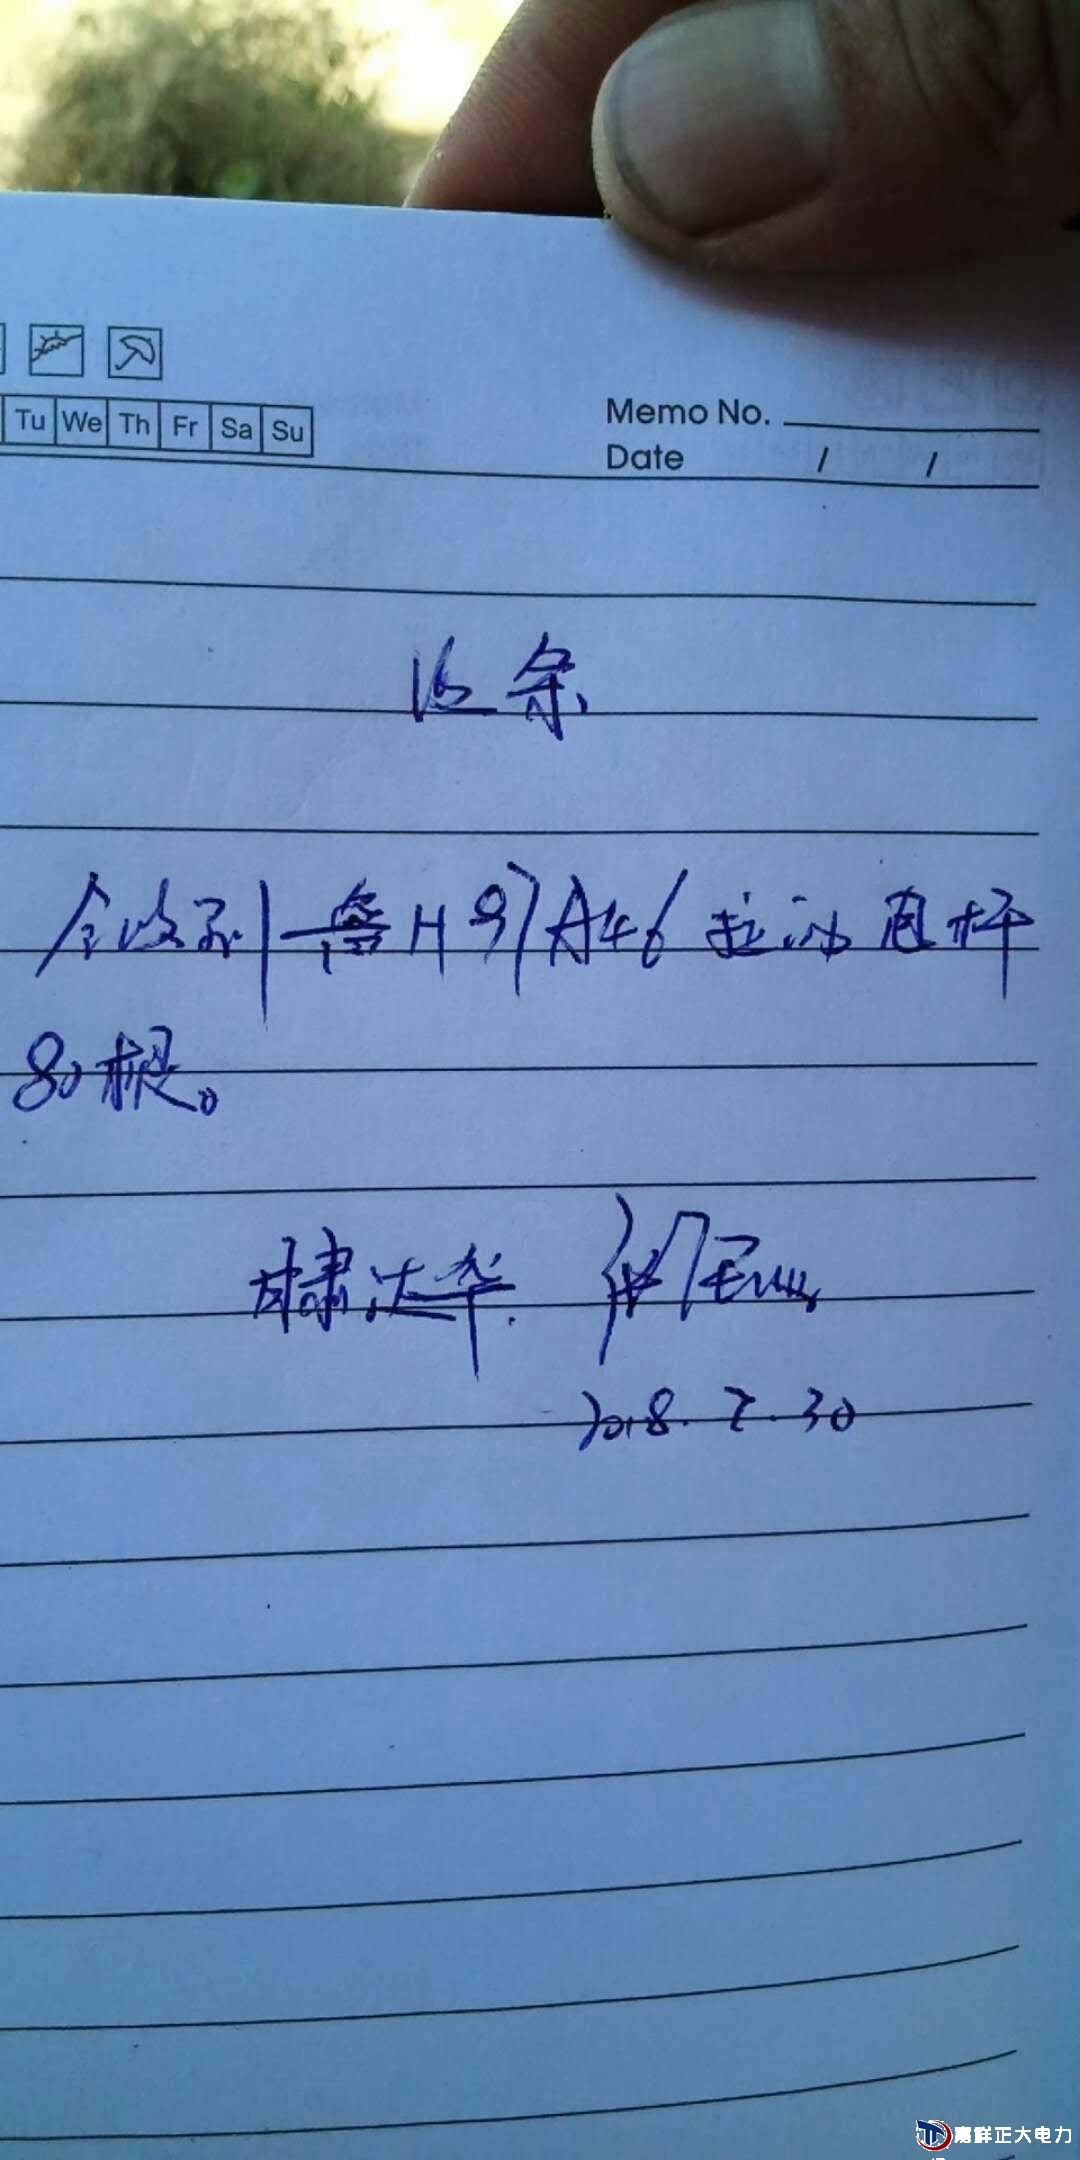 Tu We Th Fr Sa Su
Memo No.
Date / /
收条
今收到鲁H97A46拉 电杆
80根。
甘肃达华
2018.7.30
嘉祥正大电力